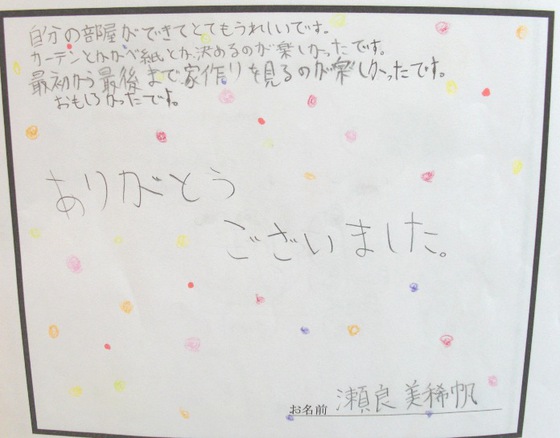 自分の部屋ができてとてもうれしいです。
カーテンとかかべ紙とか決めるのが楽しかったです。
最初から最後まで家作りを見るのが楽しかったです。
おもしろかったです。
ありがとう
ございました。
お名前 瀬良 美稀帆